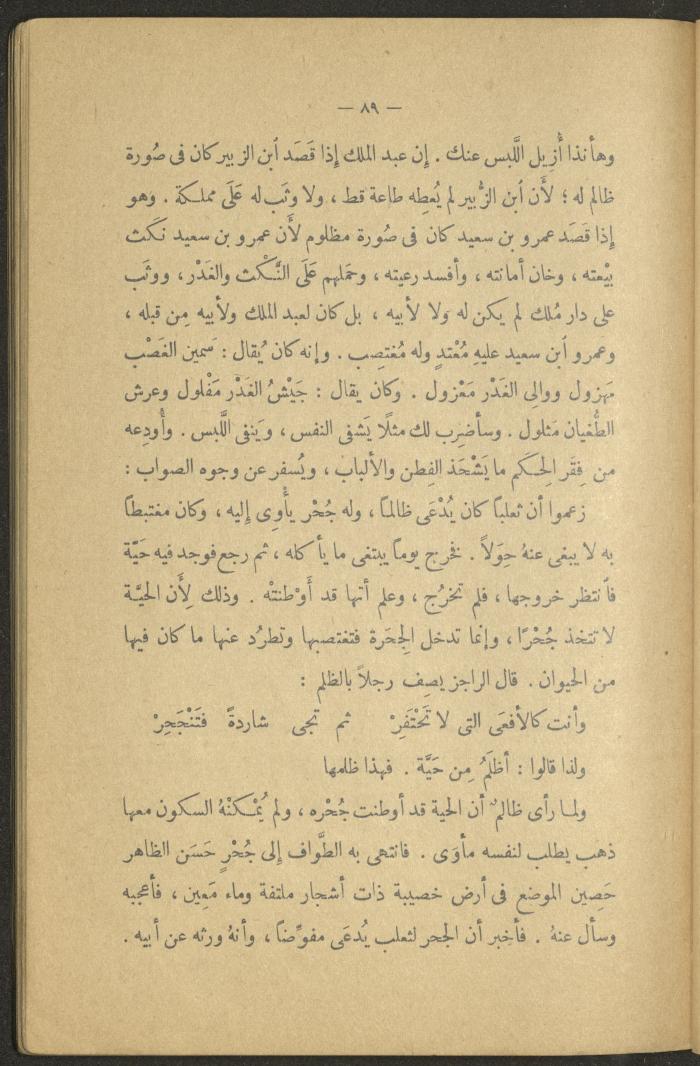 — ٨٩ —
وهأنذا أُزيل اللَّبس عنك . إن عبد الملك إذا قَصَد ابن الزبير كان فى صُورة
ظالم له ؛ لأن ابن الزُّبير لم يُعطِه طاعة قط ، ولا وثَب له عَلَى مملكة . وهو
إذا قَصَد عمرو بن سعيد كان فى صُورة مظلوم لأن عمرو بن سعيد نكَث
بيْعته ، وخان أمانته ، وأفسد رعيته ، وحَملهم عَلَى النَّكْث والغَدْر ، ووثَب
على دار مُلك لم يكن له ولا لأبيه ، بل كان لعبد الملك ولأبيه مِن قبله ،
وعمرو ابن سعيد عليهِ مُعْتدٍ وله مُغتصِب . وإنه كان يُقال : سَمين الغَصْب
مَهزول ووالى الغَدْر مَعْزول . وكان يقال : جَيْشُ الغَدْر مَفْلول وعرش
الطُّغيان مَثلول . وسأضرِب لك مثلًا يَشفى النفس ، ويَنفى اللَّبس . وأُودِعه
من فِقَر الحِكَم ما يَشْحَذ الفِطن والألباب ، ويُسفر عن وجوه الصواب :
زعموا أن ثعلباً كان يُدْعَى ظالماً ، وله جُحْر يأْوِى إليه ، وكان مغتبطاً
به لا يبغى عنهُ حِوَلاً . فخرج يوماً يبتغى ما يأكله ، ثم رجع فوجد فيه حَيَّة
فانتظر خروجها ، فلم تخرُج ، وعلم أنها قد أَوْطنتْه . وذلك لِأَن الحيَّة
لا تتخذ جُحْرًا ، وإنما تدخل الجِحَرة فتغتصبها وتطرُد عنها ما كان فيها
من الحيوان . قال الراجز يصِف رجلاً بالظلم :
وأنت كالأفعَى التى لا تَحْتَفِرْ ثم تجى شاردةً فتَنْجَحِرْ
ولذا قالوا : أظلَمُ مِن حَيَّة . فهذا ظلمها
ولما رأى ظالمٌ أن الحية قد أوطنت جُحْره ، ولم يُمْكنْهُ السكون معها
ذهب يطلب لنفسه مأوَى . فانتهى به الطَّواف إلى جُحْرٍ حَسَن الظاهر
حَصِين الموضع فى أرض خصيبة ذات أشجار ملتفة وماء مَعِين ، فأعجبه
وسأل عنهُ . فأخبر أن الجحر لثعلب يُدعَى مفوِّضاً ، وأنهُ ورثه عن أبيه .